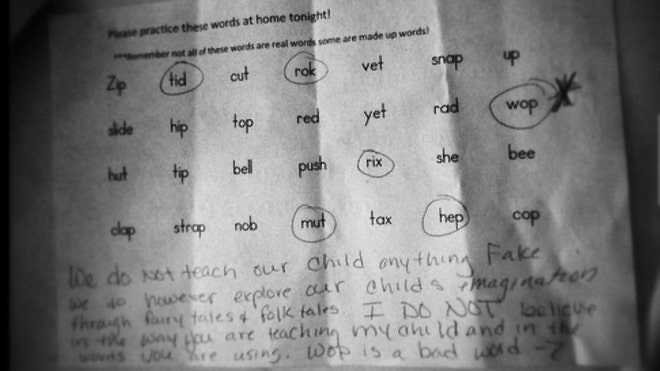 Please practice these words at home tonight!
***Remember not all of these words are real words some are made up words!
Zip tid cut rok vet snap up
slide hip top red yet rad wop
hut tip bell push rix she bee
clap strap nob mut tax hep cop
We do Not teach our child anything Fake
we do however explore our child s imagination
through fairy tales & folk tales I DO NOT believe
in the way you are teaching my child and in the
words you are using. Wop is a bad word